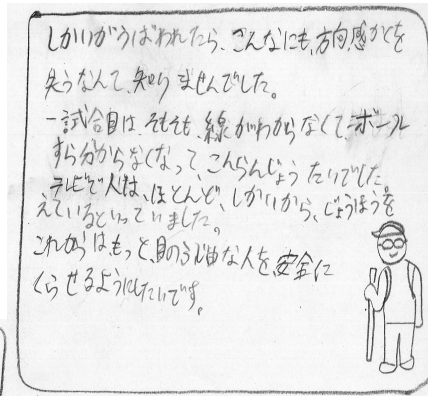 しかいがうばわれたら、こんなにも、方向感かくを
失うなんて、知りませんでした。
一試合目は、そもそも、線がわからなくて、ボール
すら分からなくなって、こんらんじょうたいでした。
テレビで人は、ほとんど、しかいから、じょうほうを
えているといっていました。
これからは、もっと、目のふじ由な人を、安全に
くらせるようにしたいです。